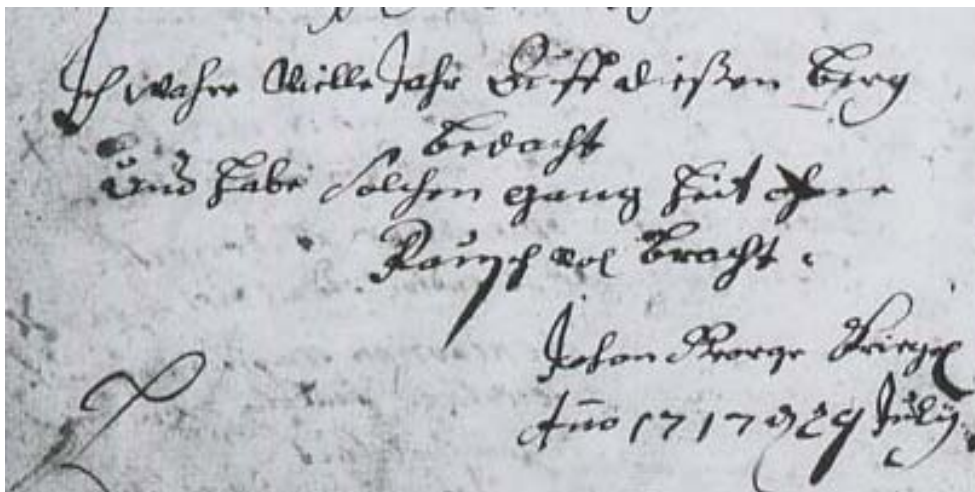 Ich wahre Vielle Jahr Auff diessen Berg
bedacht
Und habe solchen gang heit ohne
Rausch vol bracht.
Johan George Krieger
Anno 1717 d 29 July